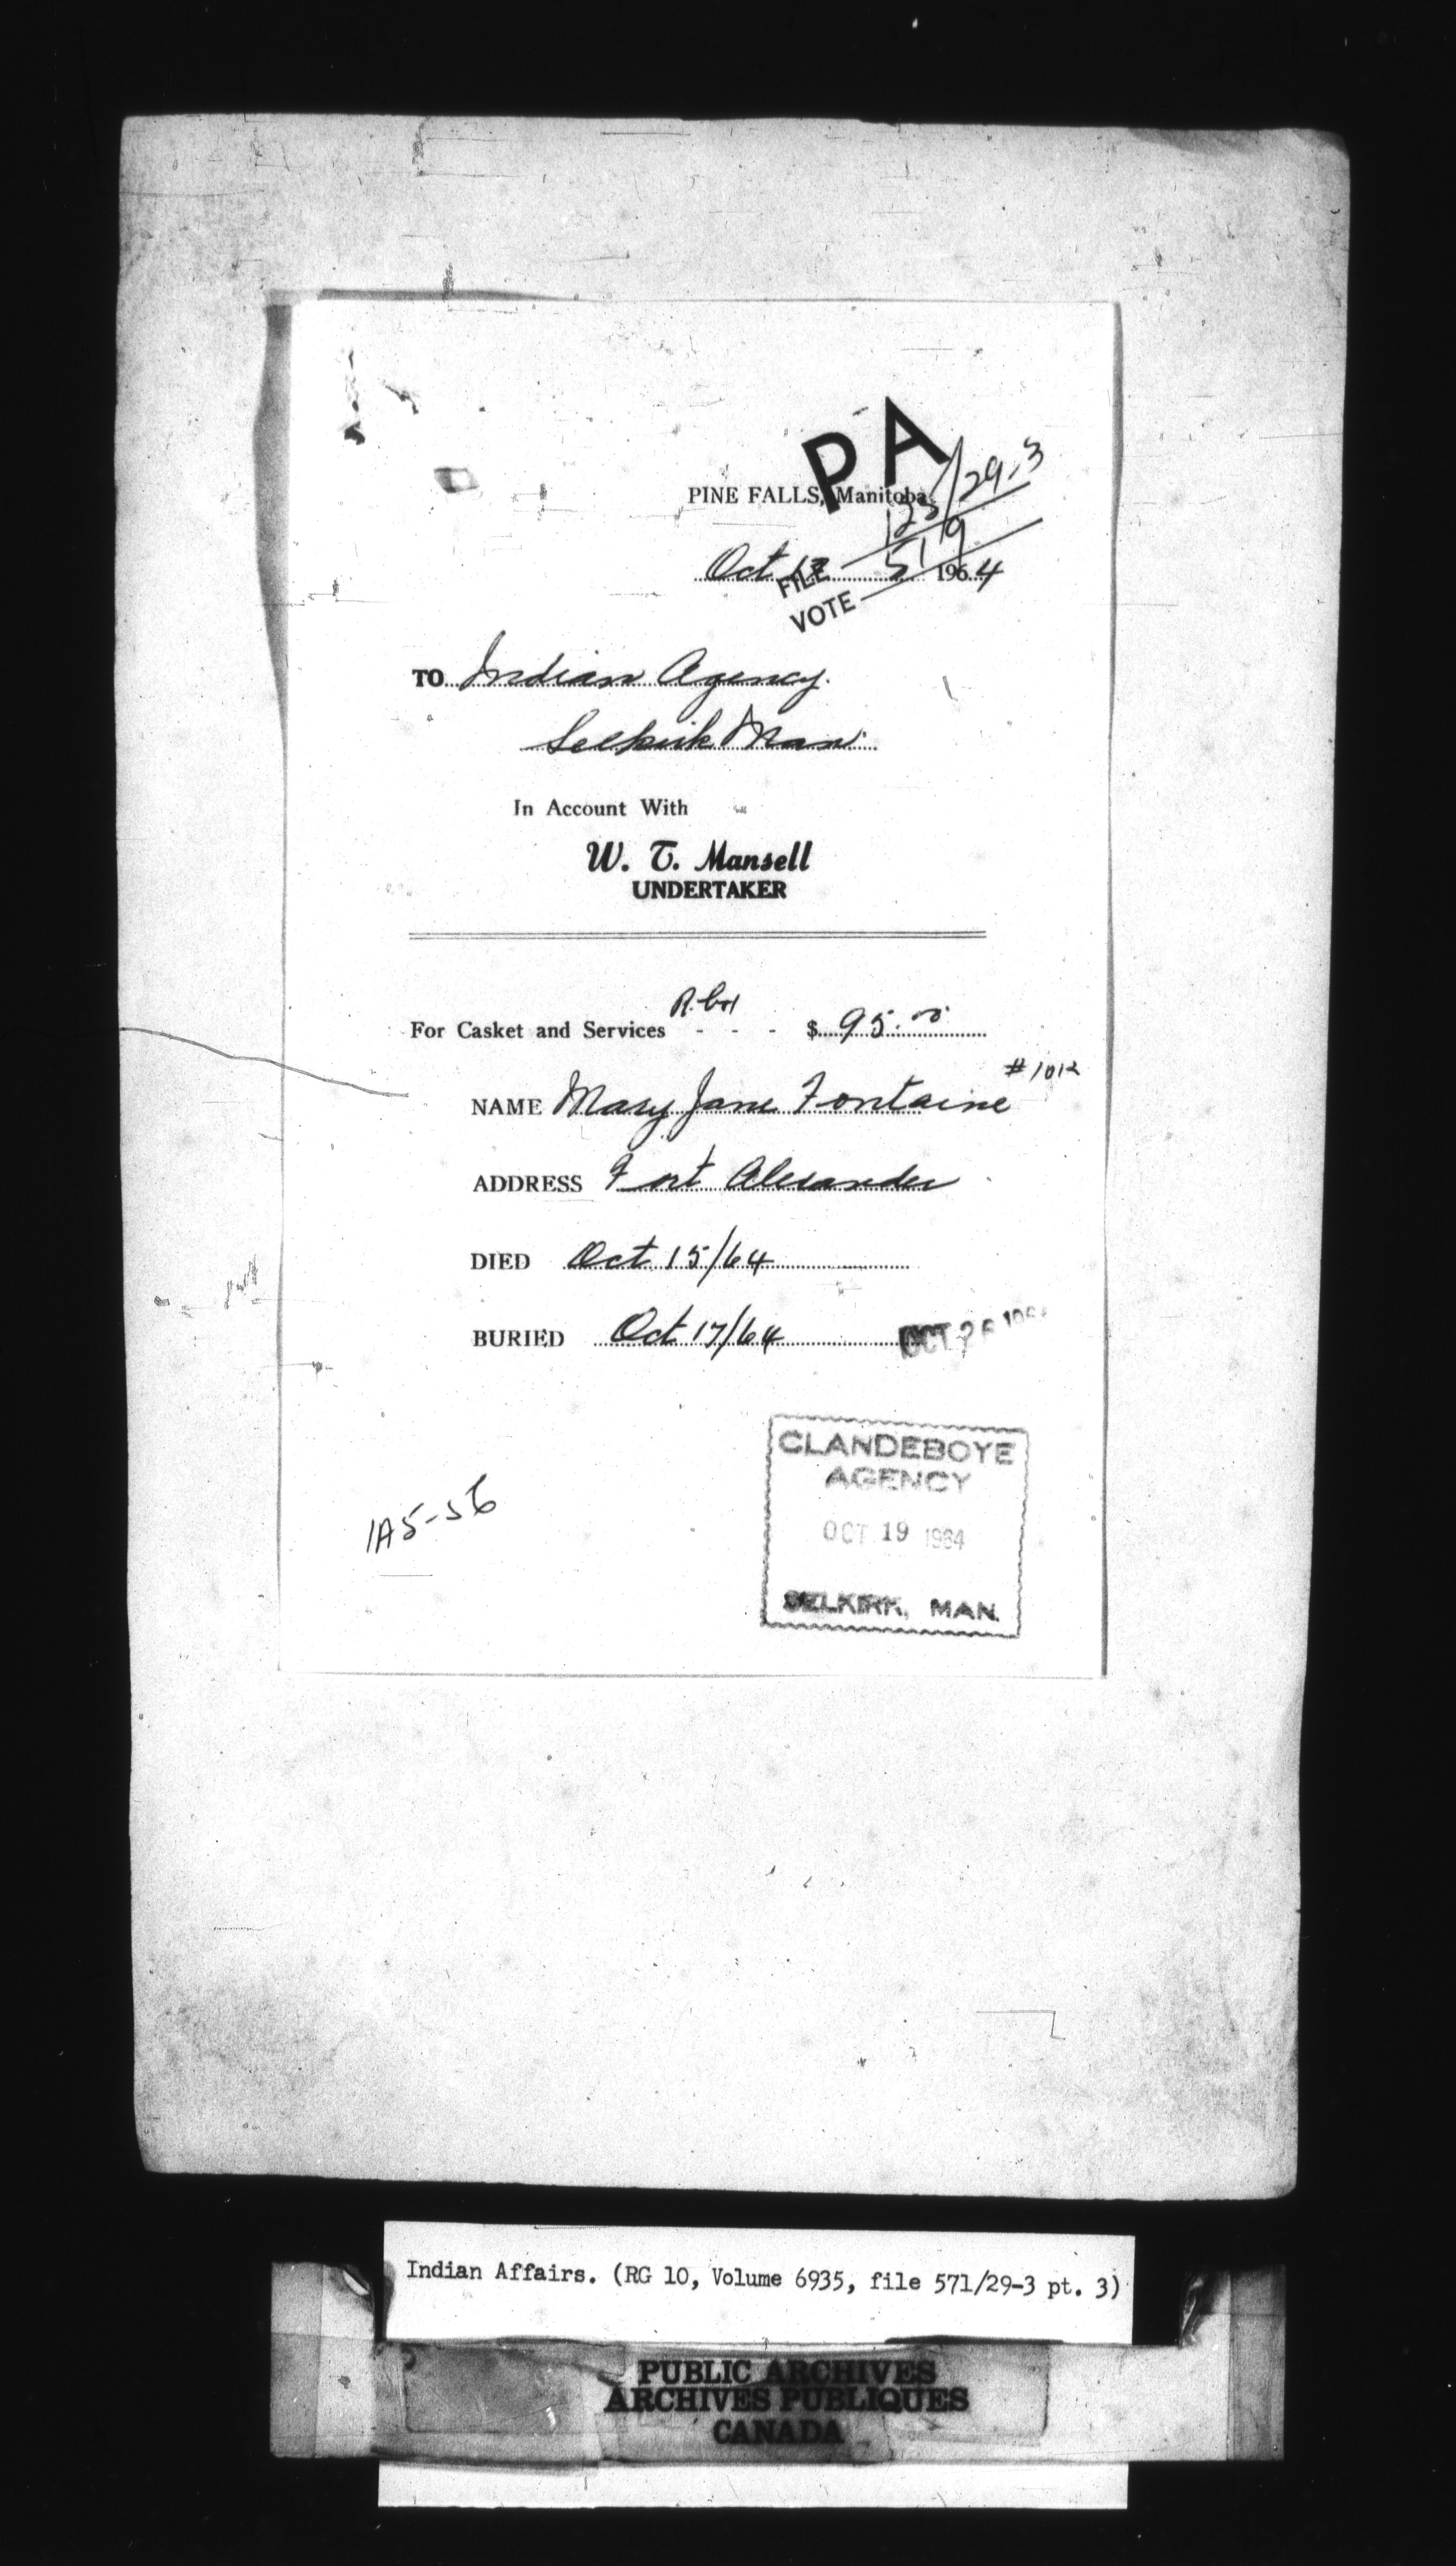 PA
PINE FALLS, Manitoba
/29-3
519
Oct 1964
FILE
VOTE
TO Indian Agency.
Selkirk Man.
In Account With
W. T. Mansell
UNDERTAKER
For Casket and Services - - - $ 95.00
#1012
NAME Mary Jane Fontaine
ADDRESS Fort Alexander
DIED Oct 15/64
BURIED Oct 17/64
OCT 26 196
CLANDEBOYE
AGENCY
OCT 19 1964
SELKIRK, MAN.
IA5-56
Indian Affairs. (RG 10, Volume 6935, file 571/29-3 pt. 3)
PUBLIC ARCHIVES
ARCHIVES PUBLIQUES
CANADA